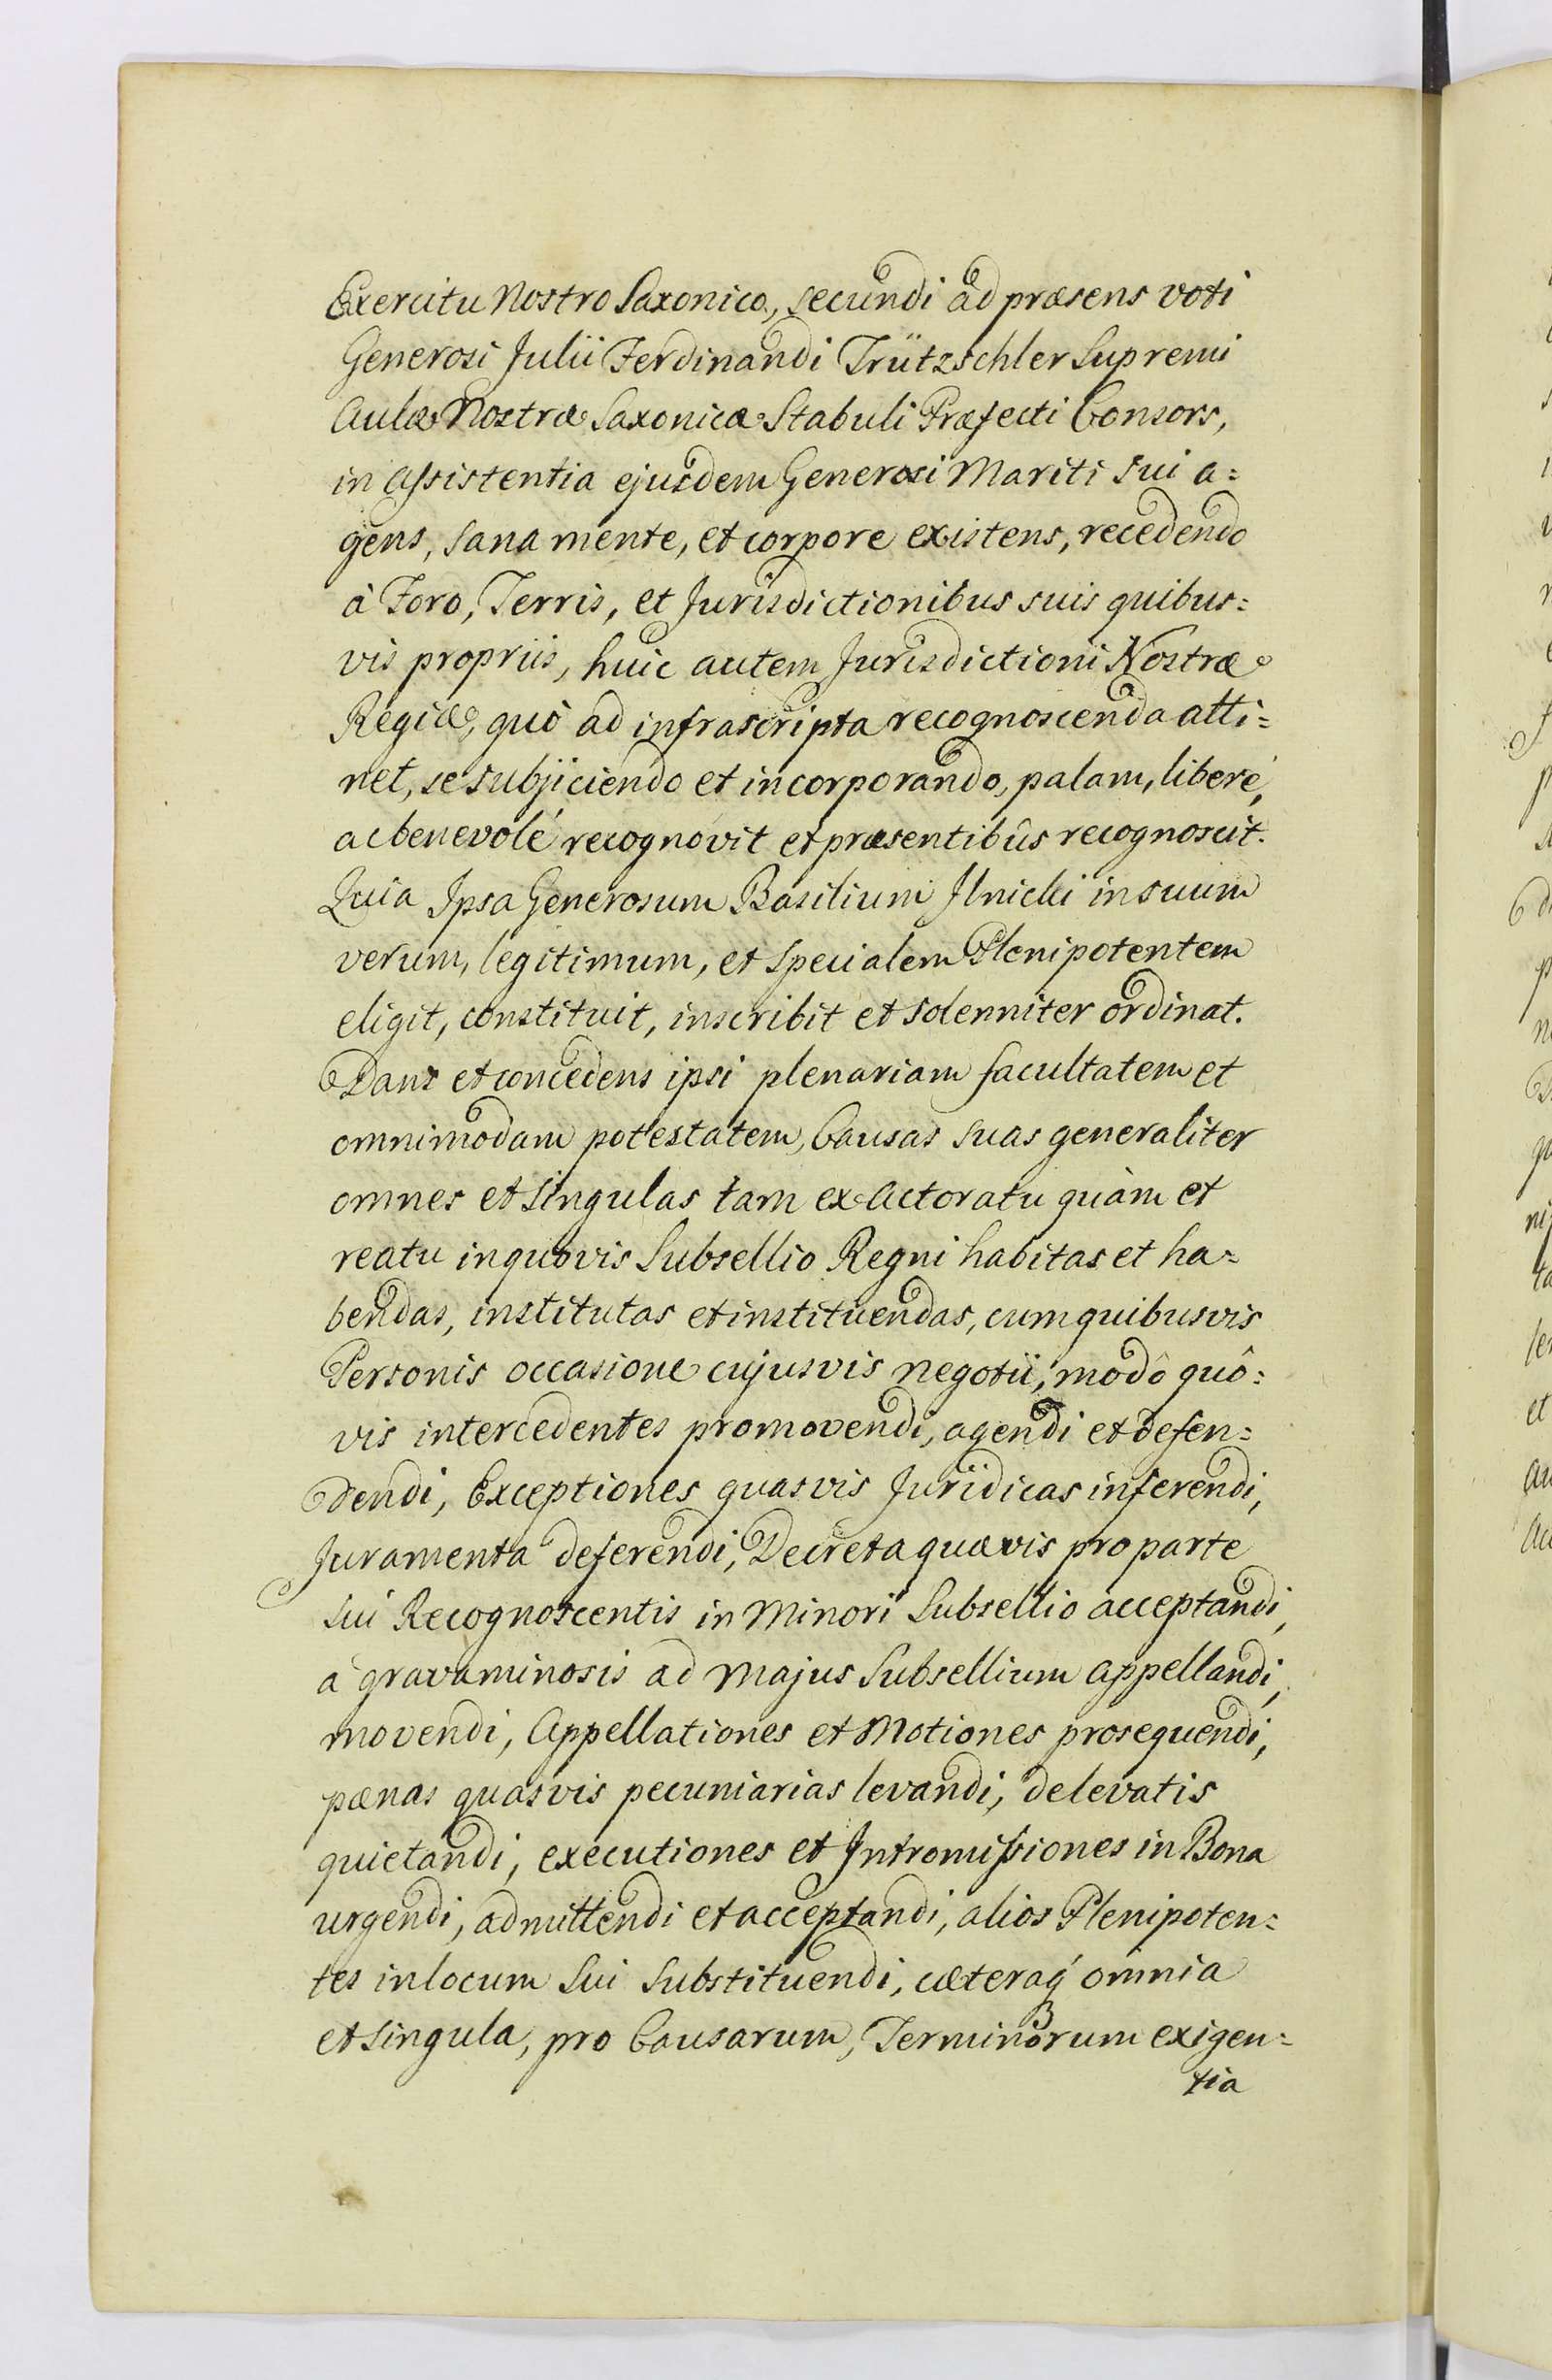 Exercitu Nostro Saxonico, secundi ad præsens voti
Generosi Julii Ferdinandi Trützschler Supremi
Aulæ Nostræ Saxonicæ Stabuli Præfecti Consors,
in assistentia ejusdem Generosi Mariti sui a=
gens, sana mente, et corpore existens, recedendo
à Foro, Terris, et Jurisdictionibus suis quibus=
vis propriis, huic autem Jurisdictioni Nostræ
Regiæ, quò ad infrascripta recognoscenda atti=
net, se subjiciendo et incorporando, palam, liberé,
ac benevolé recognovit et præsentibûs recognoscit.
Quia Ipsa Generosum Basilium Ilnicki in suum
verum, legitimum, et specialem Plenipotentem
eligit, constituit, inscribit et solenniter ordinat.
Dans et concedens ipsi plenariam facultatem et
omnimodam potestatem, Causas suas generaliter
omnes et singulas tam ex Actoratu quàm et
reatu in quovis Subsellio Regni habitas et ha=
bendas, institutas et instituendas, cum quibusvis
Personis occasione cujusvis negotii, modô quô=
vis intercedentes promovendi, agendi et defen=
dendi, Exceptiones quasvis Juridicas inferendi,
Juramenta deferendi, Decreta quævis pro parte
sui Recognoscentis in Minori Subsellio acceptandi,
à gravaminosis ad Majus Subsellium appellandi,
movendi, Appellationes et Motiones prosequendi,
pænas quasvis pecuniarias levandi, de levatis
quietandi, executiones et Intromissiones in Bona
urgendi, admittendi et acceptandi, alios Plenipoten=
tes in locum Sui Substituendi, cæteraq́ omnia
et singula, pro Causarum, Terminorum exigen=
tia